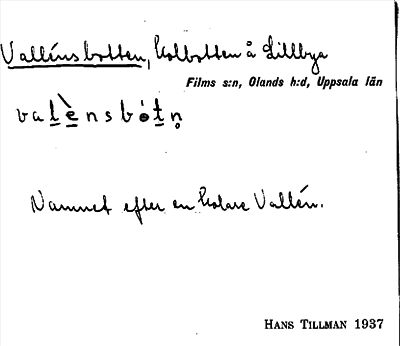 Valléns botten, Kolbotten å Lillbya
Films s:n, Olands h:d, Uppsala län
Namnet efter en kolare Vallén.
HANS TILLMAN 1937